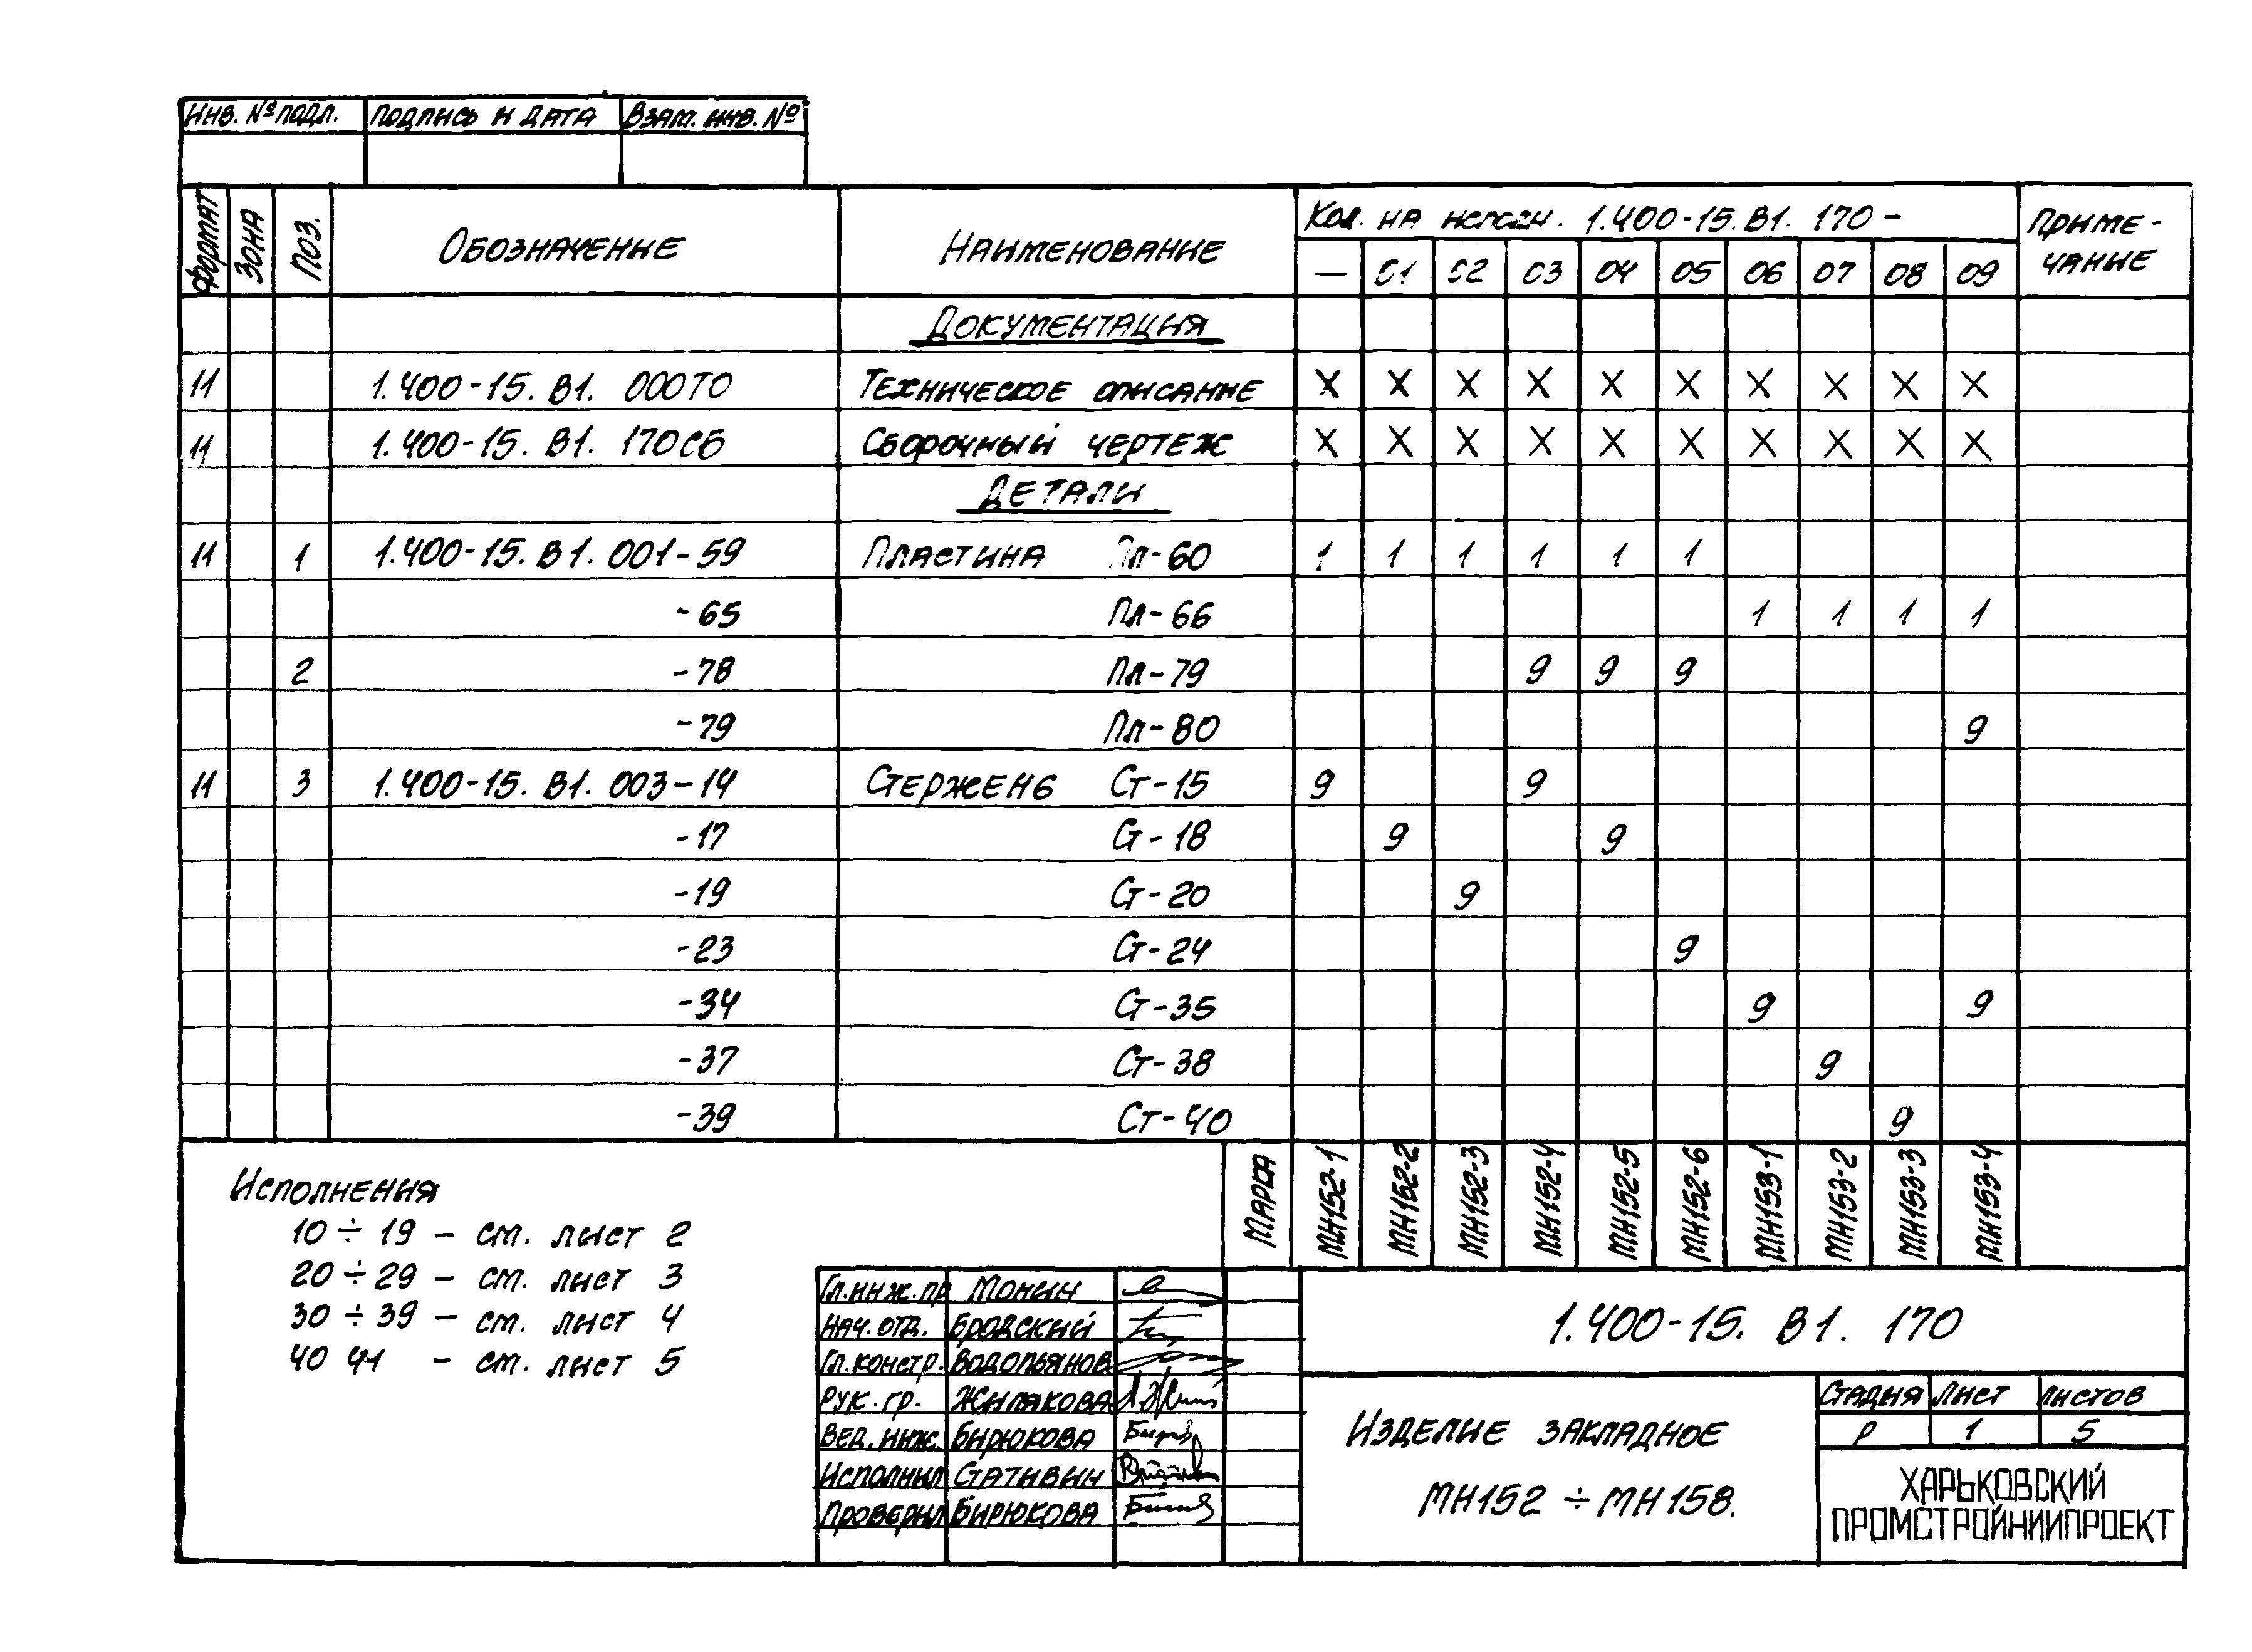 Инв. № подл. Подпись и дата Взам. инв. №
Формат Зона Поз. Обозначение Наименование Кол. на исполн. 1.400-15.В1. 170- Приме-чание
— 01 02 03 04 05 06 07 08 09
Документация
11 1.400-15. В1. 000ТО Техническое описание X X X X X X X X X X
11 1.400-15. В1. 170СБ Сборочный чертеж X X X X X X X X X X
Детали
11 1 1.400-15. В1. 001-59 Пластина Пл-60 1 1 1 1 1 1
-65 Пл-66 1 1 1 1
2 -78 Пл-79 9 9 9
-79 Пл-80 9
11 3 1.400-15. В1. 003-14 Стержень Ст-15 9 9
-17 Ст-18 9 9
-19 Ст-20 9
-23 Ст-24 9
-34 Ст-35 9 9
-37 Ст-38 9
-39 Ст-40 9
Марка МН152-1 МН152-2 МН152-3 МН152-4 МН152-5 МН152-6 МН153-1 МН153-2 МН153-3 МН153-4
Исполнения
10 ÷ 19 - см. лист 2
20 ÷ 29 - см. лист 3
30 ÷ 39 - см. лист 4
40 41 - см. лист 5
Гл.инж.пр Монин
Нач.отд. Бродский
Гл.констр. Водопьянов
Рук. гр. Жилякова
Вед. инж. Бирюкова
Исполнил Стативин
Проверил Бирюкова
1.400-15. В1. 170
Изделие закладное
МН152 ÷ МН158.
Стадия Лист Листов
Р 1 5
ХАРЬКОВСКИЙ
ПРОМСТРОЙНИИПРОЕКТ